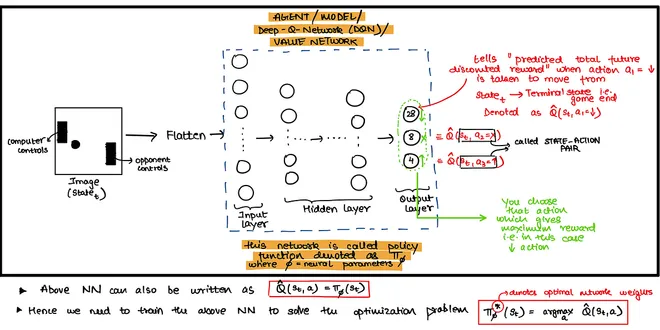 AGENT/MODEL/
Deep-Q-Network (DQN)/
VALUE NETWORK
tells "predicted total future
discounted reward" when action a₁=↓
is taken to move from
State_t → Terminal state i.e.
game end
Denoted as Q̂(s_t, a₁=↓)
28
8
≡ Q̂(s_t, a₂=x)
4
≡ Q̂(s_t, a₃=↑)
called STATE-ACTION
PAIR
computer
controls
opponent
controls
Image
(State_t)
Flatten
Input
layer
Hidden layer
Output
layer
You choose
that action
which gives
maximum reward
i.e. in this case
↓ action
this network is called policy
function denoted as π_ø
where ø = neural parameters
▸ Above NN can also be written as Q̂(s_t, a) = π_ø(s_t)
denotes optimal network weights
▸ Hence we need to train the above NN to solve the optimization problem π_ø*(s_t) = argmax_a Q̂(s_t, a)